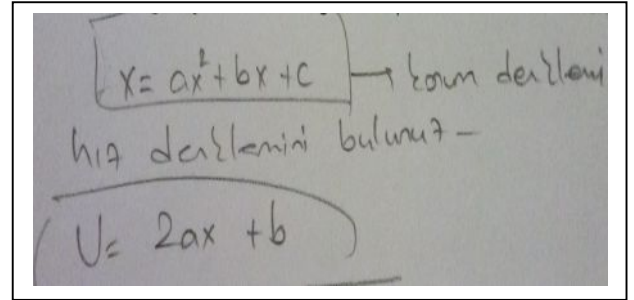 x = ax² + bx + c → konum denklemi
hız denklemini bulunuz –
V = 2ax + b